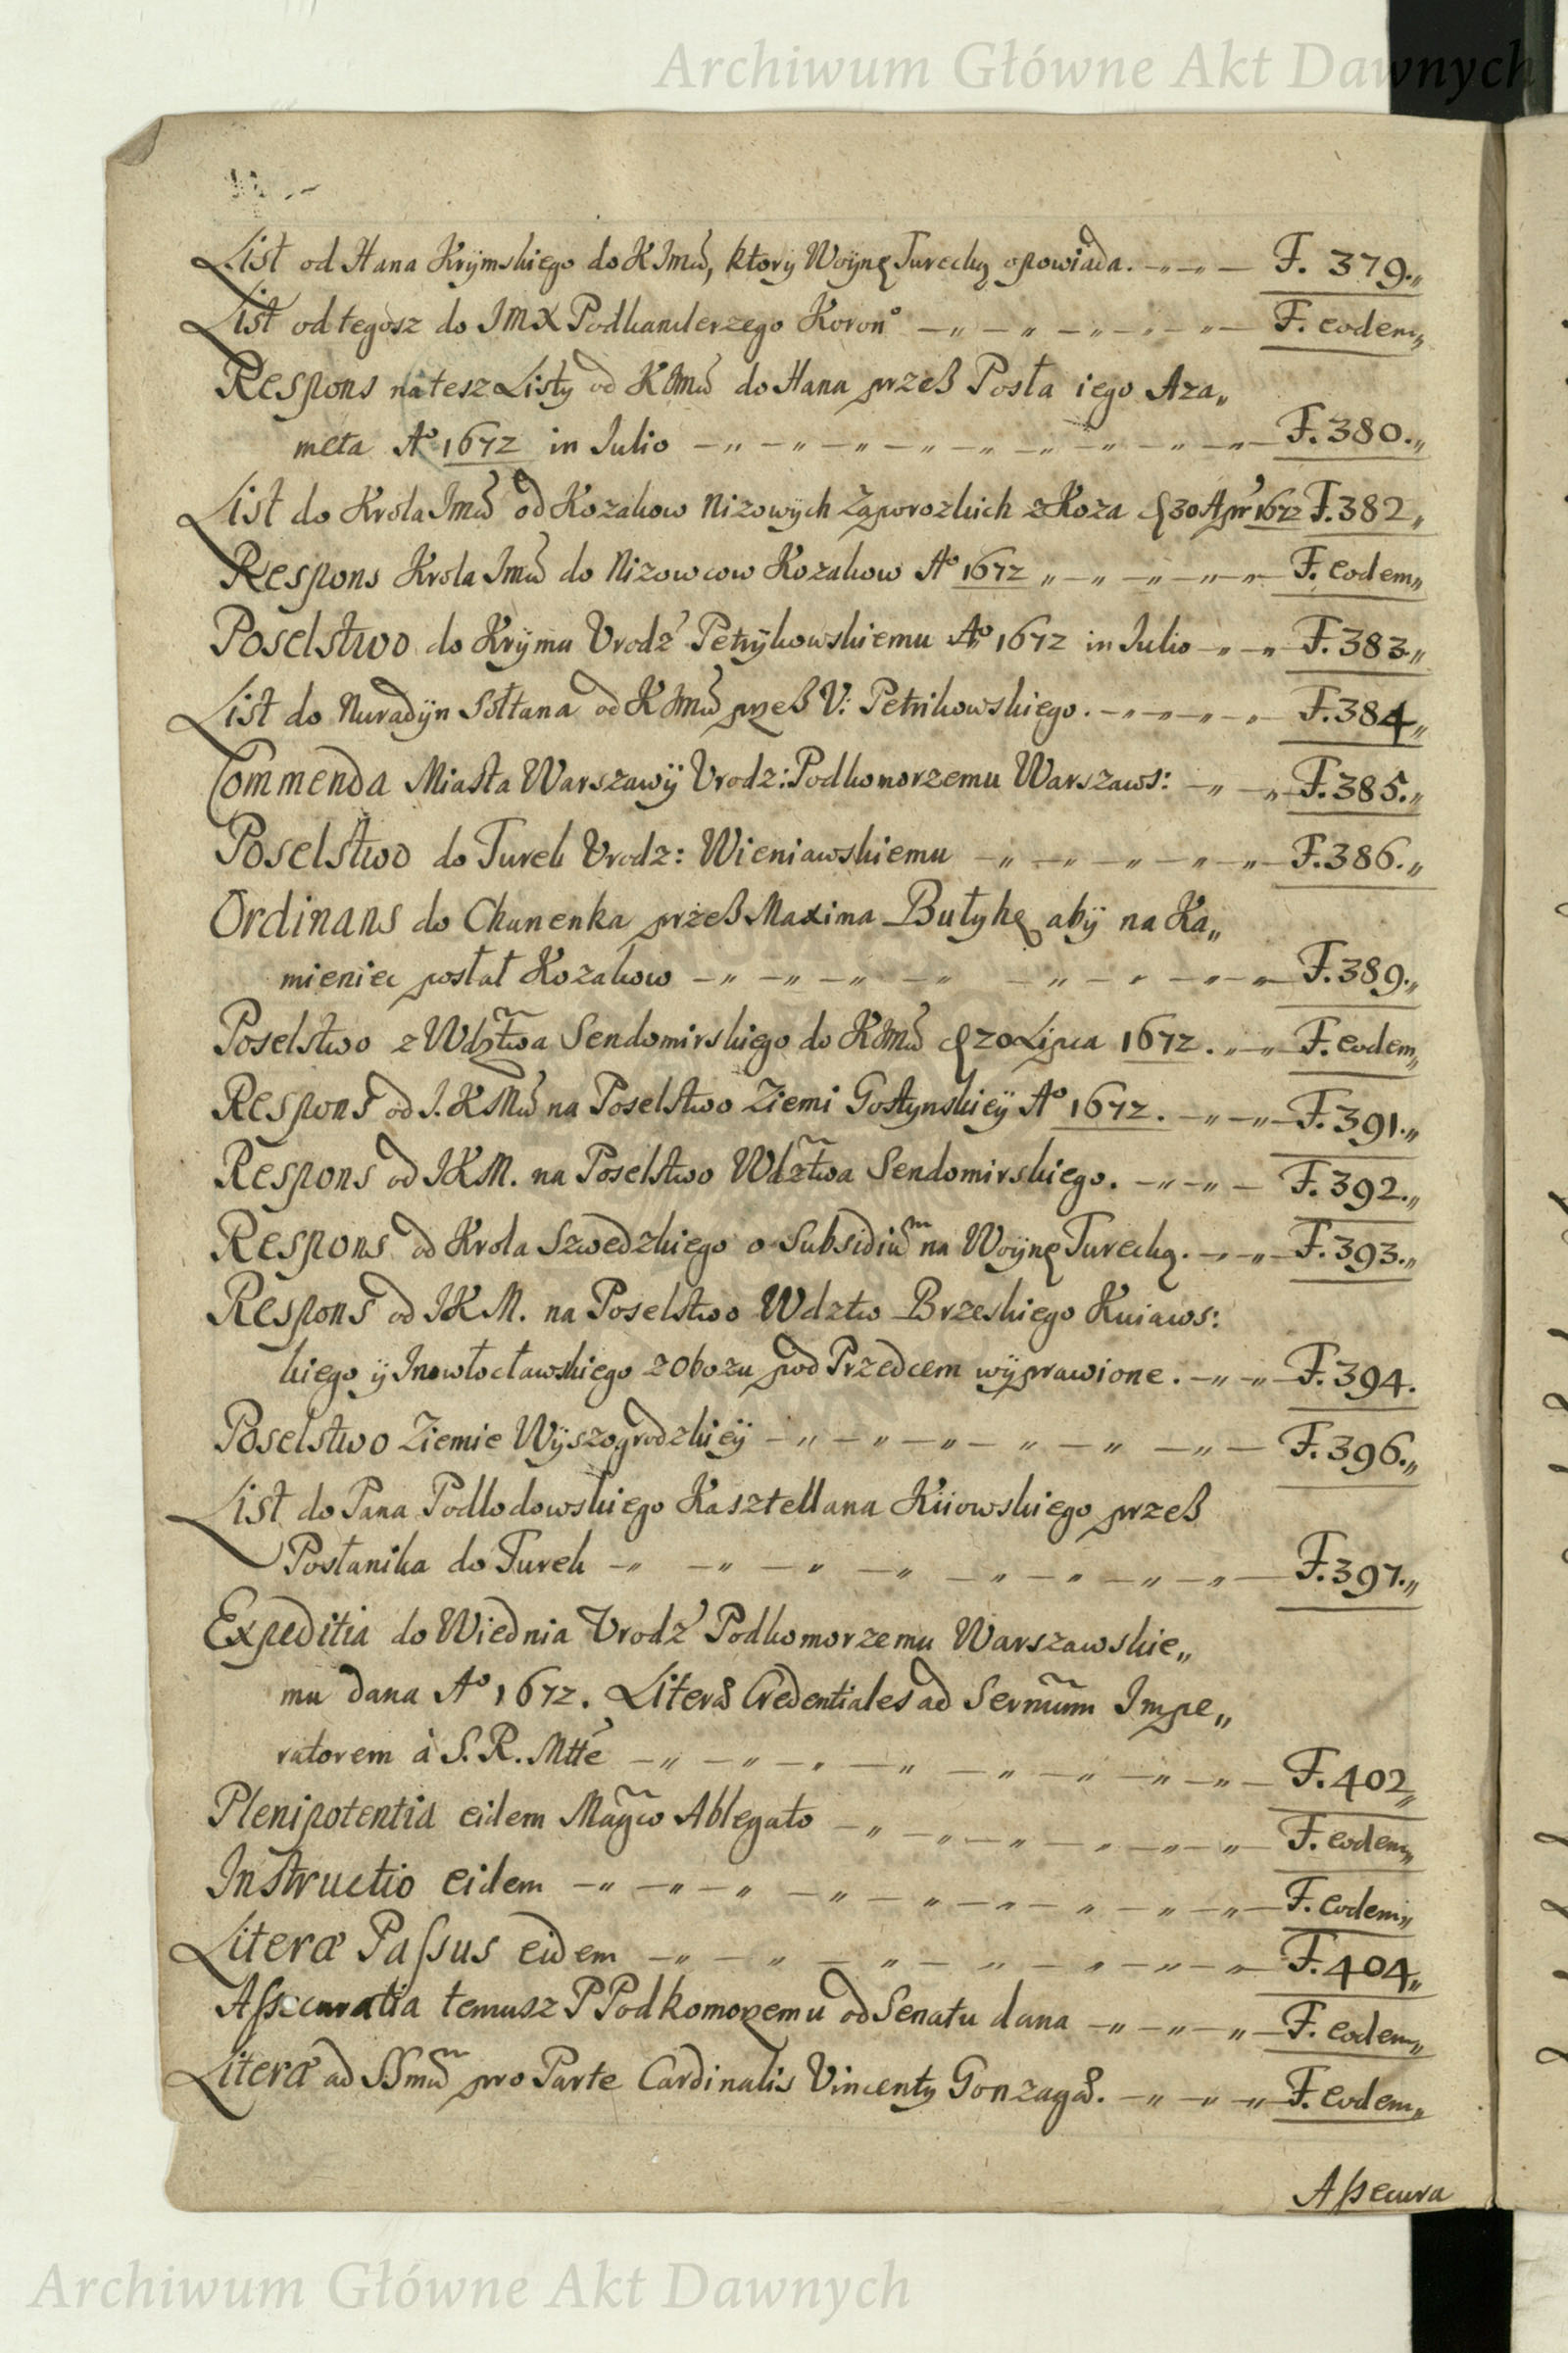 Archiwum Główne Akt Dawnych
List od Hana Krÿmskiego do K Jmć, ktorÿ Woÿnę Turecką opowiada. F. 379.
List od tegosz do JMX Podkanclerzego Koron° F. eodem
Respons na tesz Listy od K Jmć do Hana przeß Posła iego Aza„
meta A° 1672 in Julio F. 380.
List do Krola Jmć od Kozakow Nizowÿch Zaporozkich z Koza 30 Apr 1672 F. 382
Respons Krola Jmć do Nizowcow Kozakow A° 1672 F. eodem
Poselstwo do Krÿmu Vrodź Petrÿkowskiemu A° 1672 in Julio F. 383
List do Nuradÿn Sołtana od K Jmć przeß V: Petrikowskiego. F. 384
Commenda Miasta Warszawÿ Vrodz: Podkomorzemu Warszaws: F. 385.
Poselstwo do Turek Vrodz: Wieniawskiemu F. 386.
Ordinans do Chanenka przeß Maxima Bułykę abÿ na Ka„
mieniec posłał Kozakow F. 389.
Poselstwo z Wdztwa Sendomirskiego do K Jmć 20 Lipca 1672. F. eodem
Respons od J. K Mći na Poselstwo Ziemi Gostynskieÿ A° 1672. F. 391.
Respons od JKM. na Poselstwo Wdztwa Sendomirskiego. F. 392.
Respons od Krola Szwedzkiego o Subsidiũ na Woÿnę Turecką. F. 393.
Respons od JKM. na Poselstwo Wdztw Brzeskiego Kuiaws:
kiego ÿ Inowłocławskiego z Obozu pod Przedcem wÿprawione. F. 394.
Poselstwo Ziemie Wÿszogrodzkieÿ F. 396.
List do Pana Podlodowskiego Kasztellana Kiiowskiego przeß
Posłanika do Turek F. 397.
Expeditia do Wiednia Vrodź Podkomorzemu Warszawskie„
mu dana A° 1672. Literæ Credentiales ad Sernum̃ Impe„
ratorem à S. R. Mtte F. 402
Plenipotentia eidem Magco Ablegato F. eodem
Instructio eidem F. eodem
Literæ Paſsus eidem F. 404
Aſsecuratia temusz P Podkomorzemu od Senatu dana F. eodem
Literæ ad SSmũ pro Parte Cardinalis Vincenty Gonzagæ. F. eodem
Aſsecura
Archiwum Główne Akt Dawnych